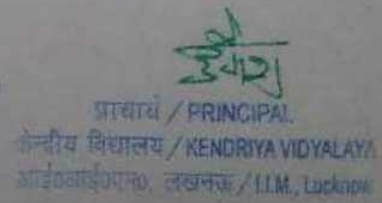 प्राचार्य / PRINCIPAL
केन्द्रीय विद्यालय / KENDRIYA VIDYALAYA
आई०आई०एम०, लखनऊ / I.I.M., Lucknow